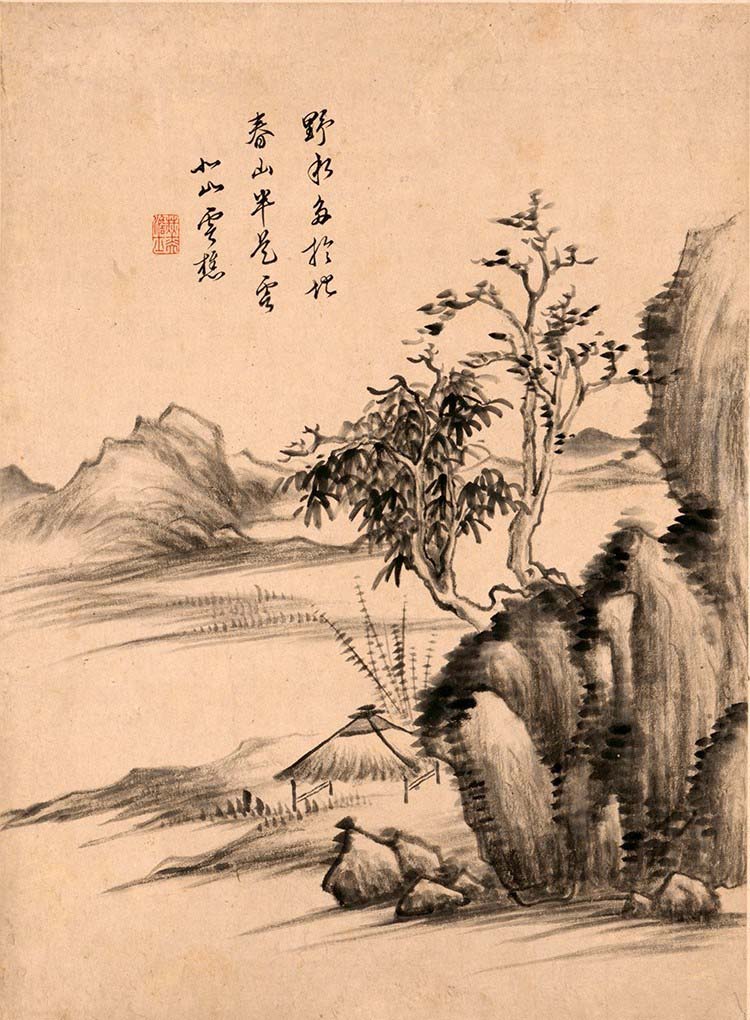 野水多於地
春山半是雲
北山雲樵